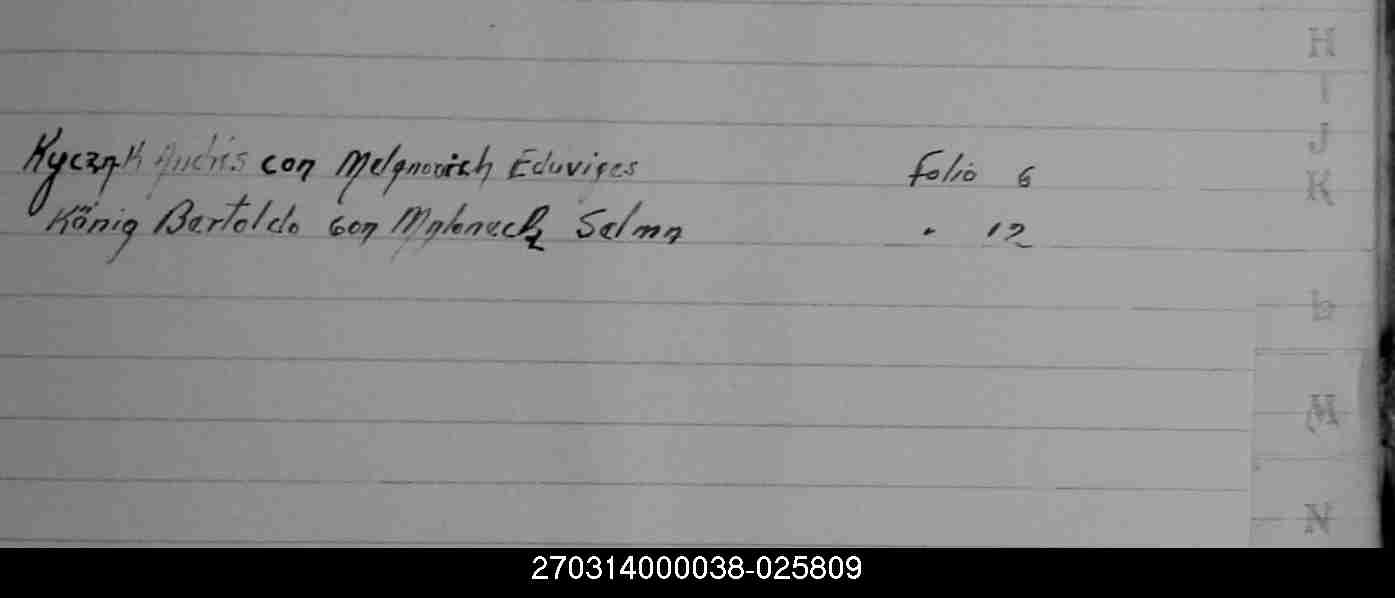 H
I
J
Kyczak Andrés con Melanovich Eduviges Folio 6
K
König Bertoldo con Mylonack Selma " 12
L
M
N
270314000038-025809